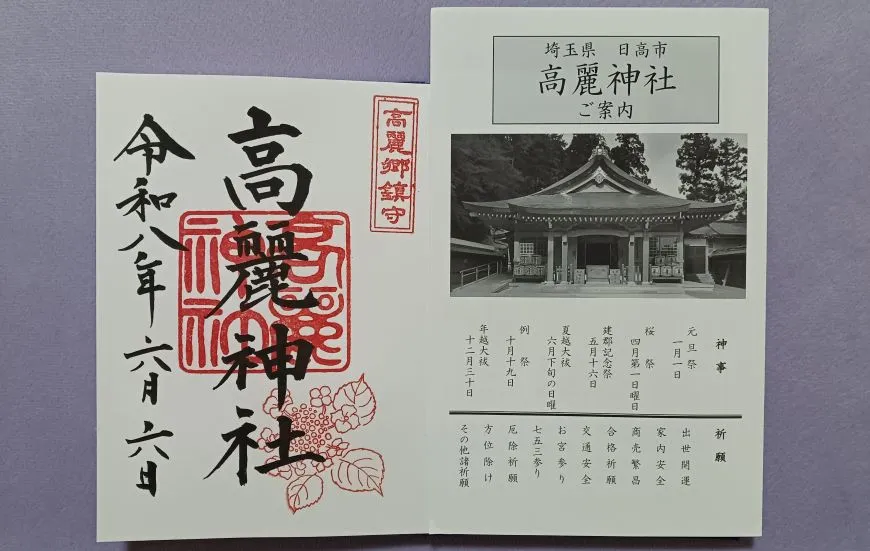 高麗郷鎮守
高麗神社
令和八年六月六日
埼玉県 日高市
高麗神社
ご案内
神事
元旦祭
一月一日
桜祭
四月第一日曜日
建郡記念祭
五月十六日
夏越大祓
六月下旬の日曜
例祭
十月十九日
年越大祓
十二月三十日
祈願
出世開運
家内安全
商売繁昌
合格祈願
交通安全
お宮参り
七五三参り
厄除祈願
方位除け
その他諸祈願
高麗神社